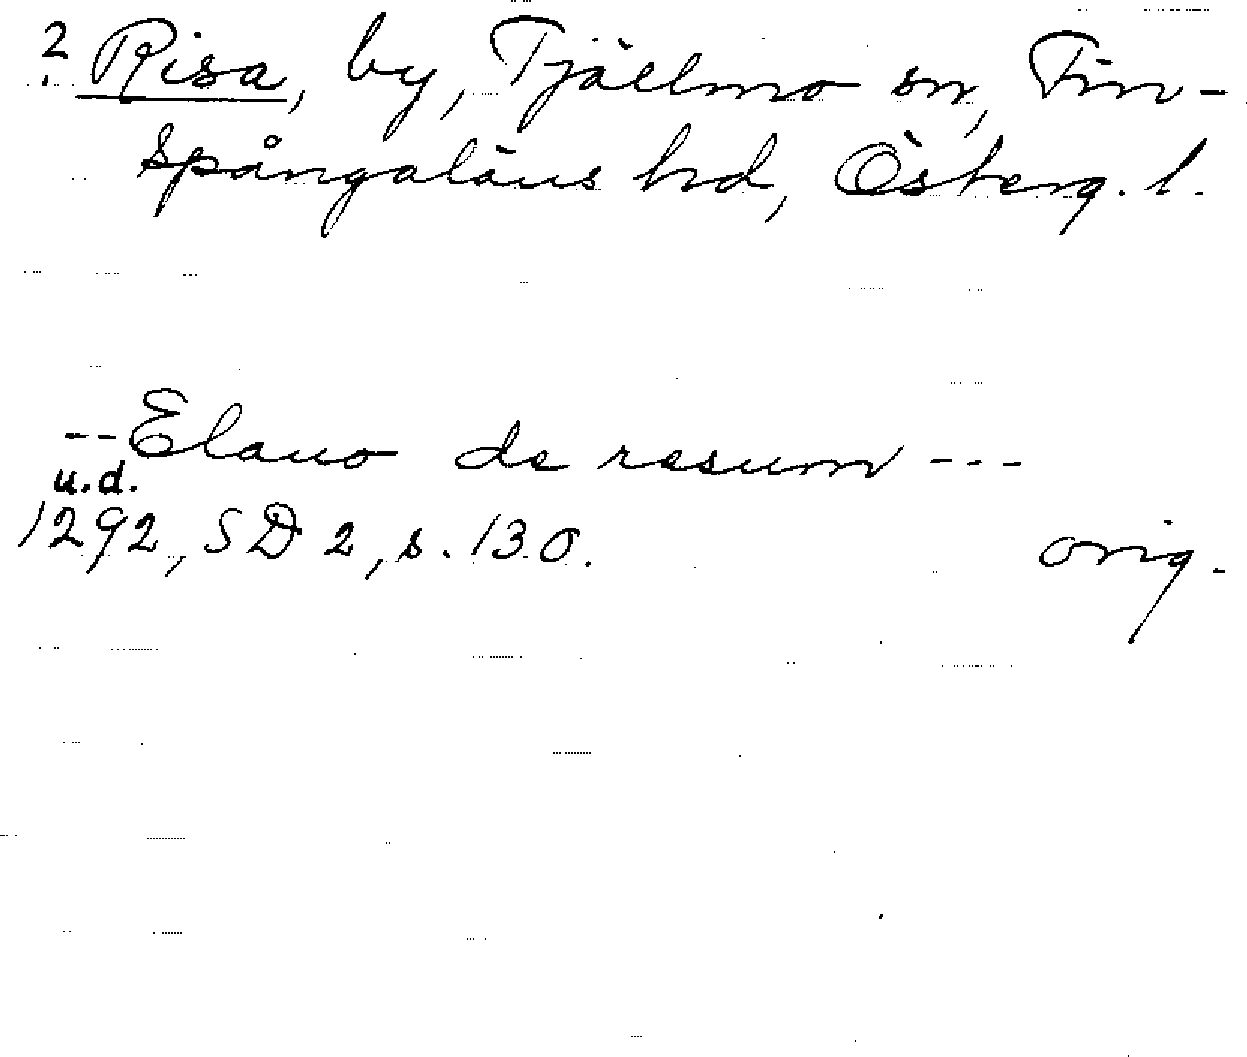 ? Risa, by, Tjällmo sn, Fin-
spångaläns hd, Österg. l.
--Elauo de resum---
u.d.
1292, SD 2, s. 130. orig.